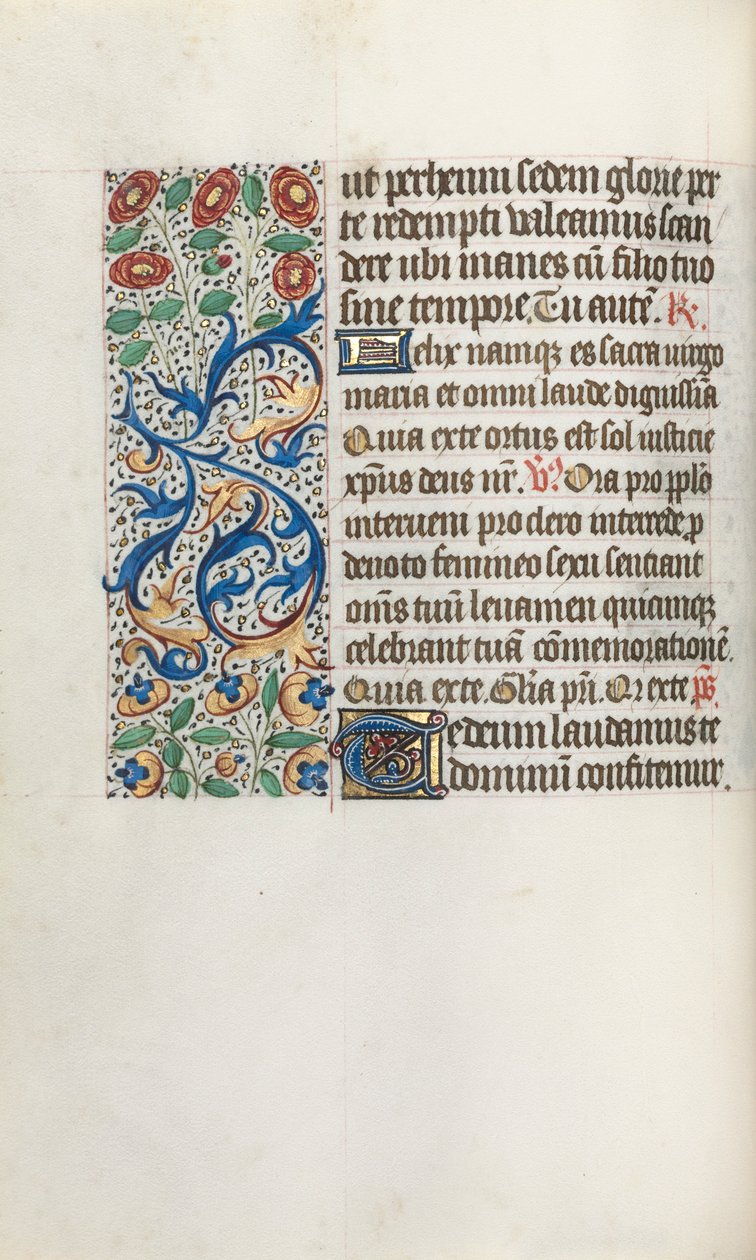 ut perhenni sedem glorie per
te redempti valeamus scan
dere ubi manes cū filio tuo
sine tempore. Tu autē. R.
Felix namqz es sacra uirgo
maria et omni laude dignissīa
Quia ex te ortus est sol iusticie
xp̄us deus nr̄. V. Ora pro pplō
interueni pro clero intercede p
deuoto femineo sexu sentiant
om̄s tuū leuamen quicumqz
celebrant tuā cōmemorationē.
Quia ex te. Gl̄ia pr̄i. Q ex te p̄s.
Te deum laudamus te
dominū confitemur.